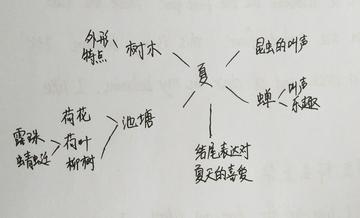 外形
特点
树木
夏
昆虫的叫声
蝉
叫声
乐趣
池塘
荷花
荷叶
柳树
露珠
蜻蜓
结尾表达对
夏天的喜爱